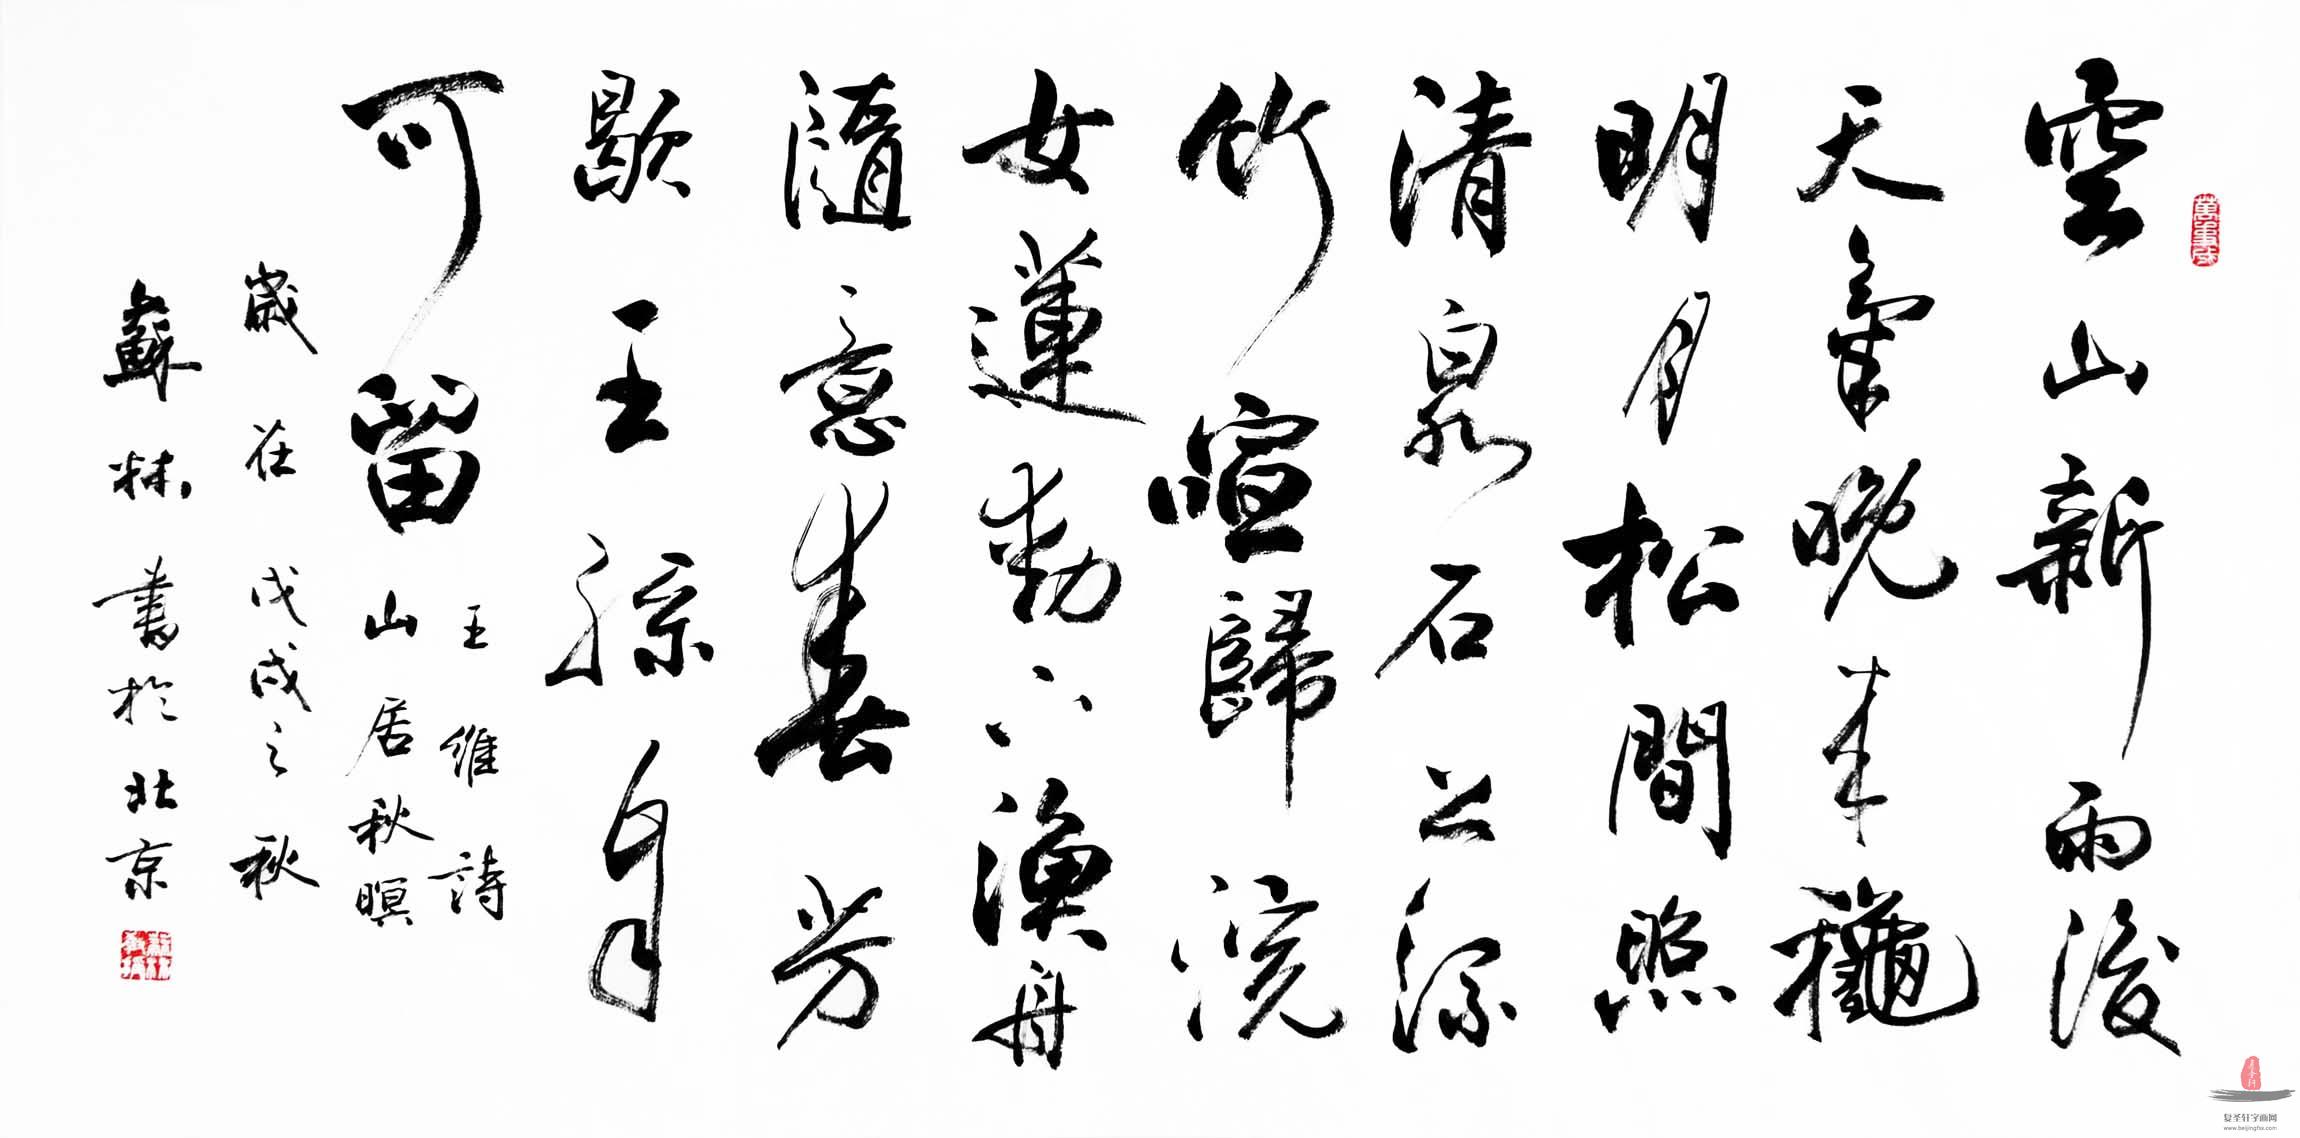 萬事成
空山新雨後
天氣晚来龝
明月松間照
清泉石上流
竹喧歸浣
女蓮動下漁舟
隨意春芳
歇王孫自
可留
王維詩
山居秋暝
歲在戊戌之秋
蘇林書於北京
复圣轩字画网